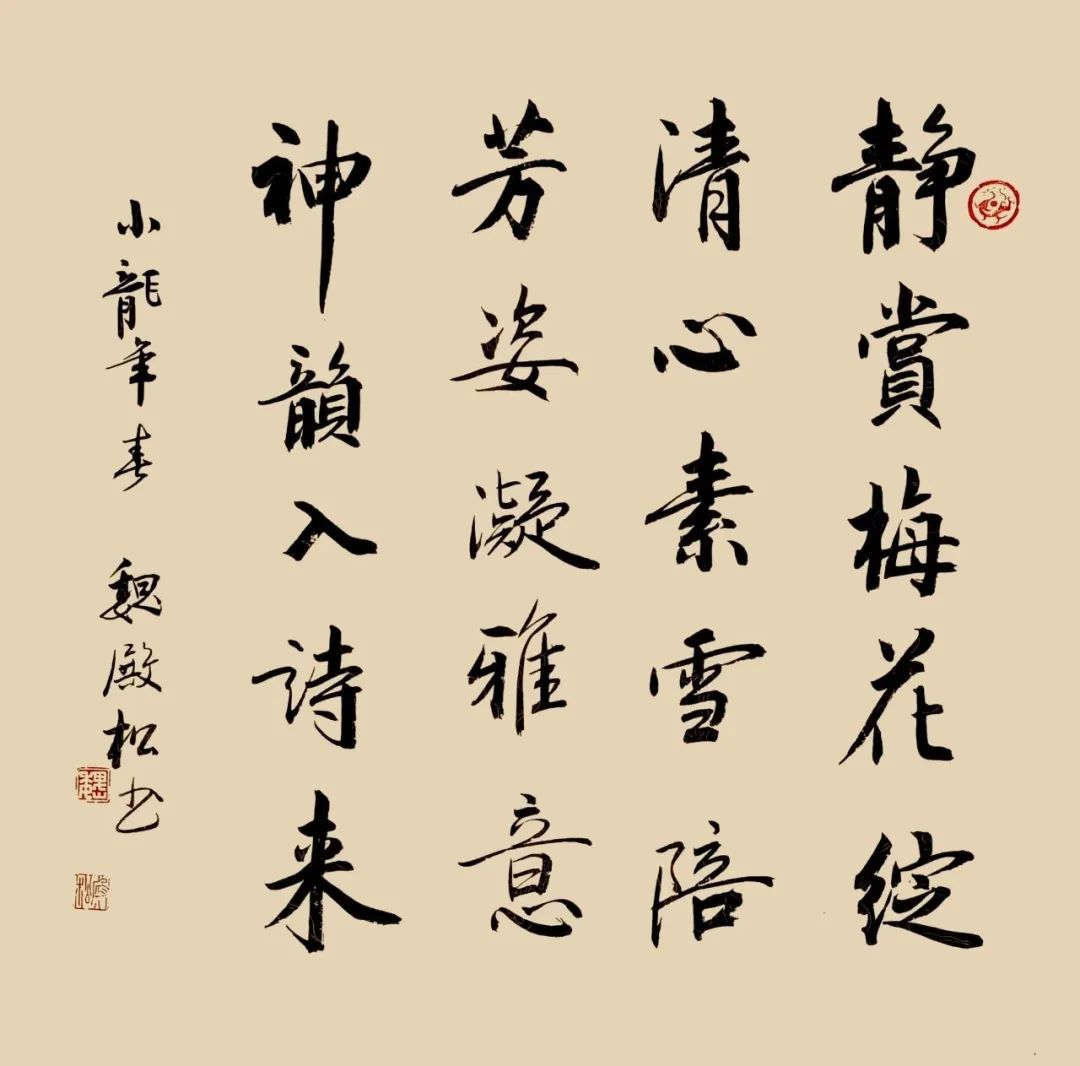 静賞梅花綻
清心素雪陪
芳姿凝雅意
神韻入詩来
小龍年春 魏殿松书
魏